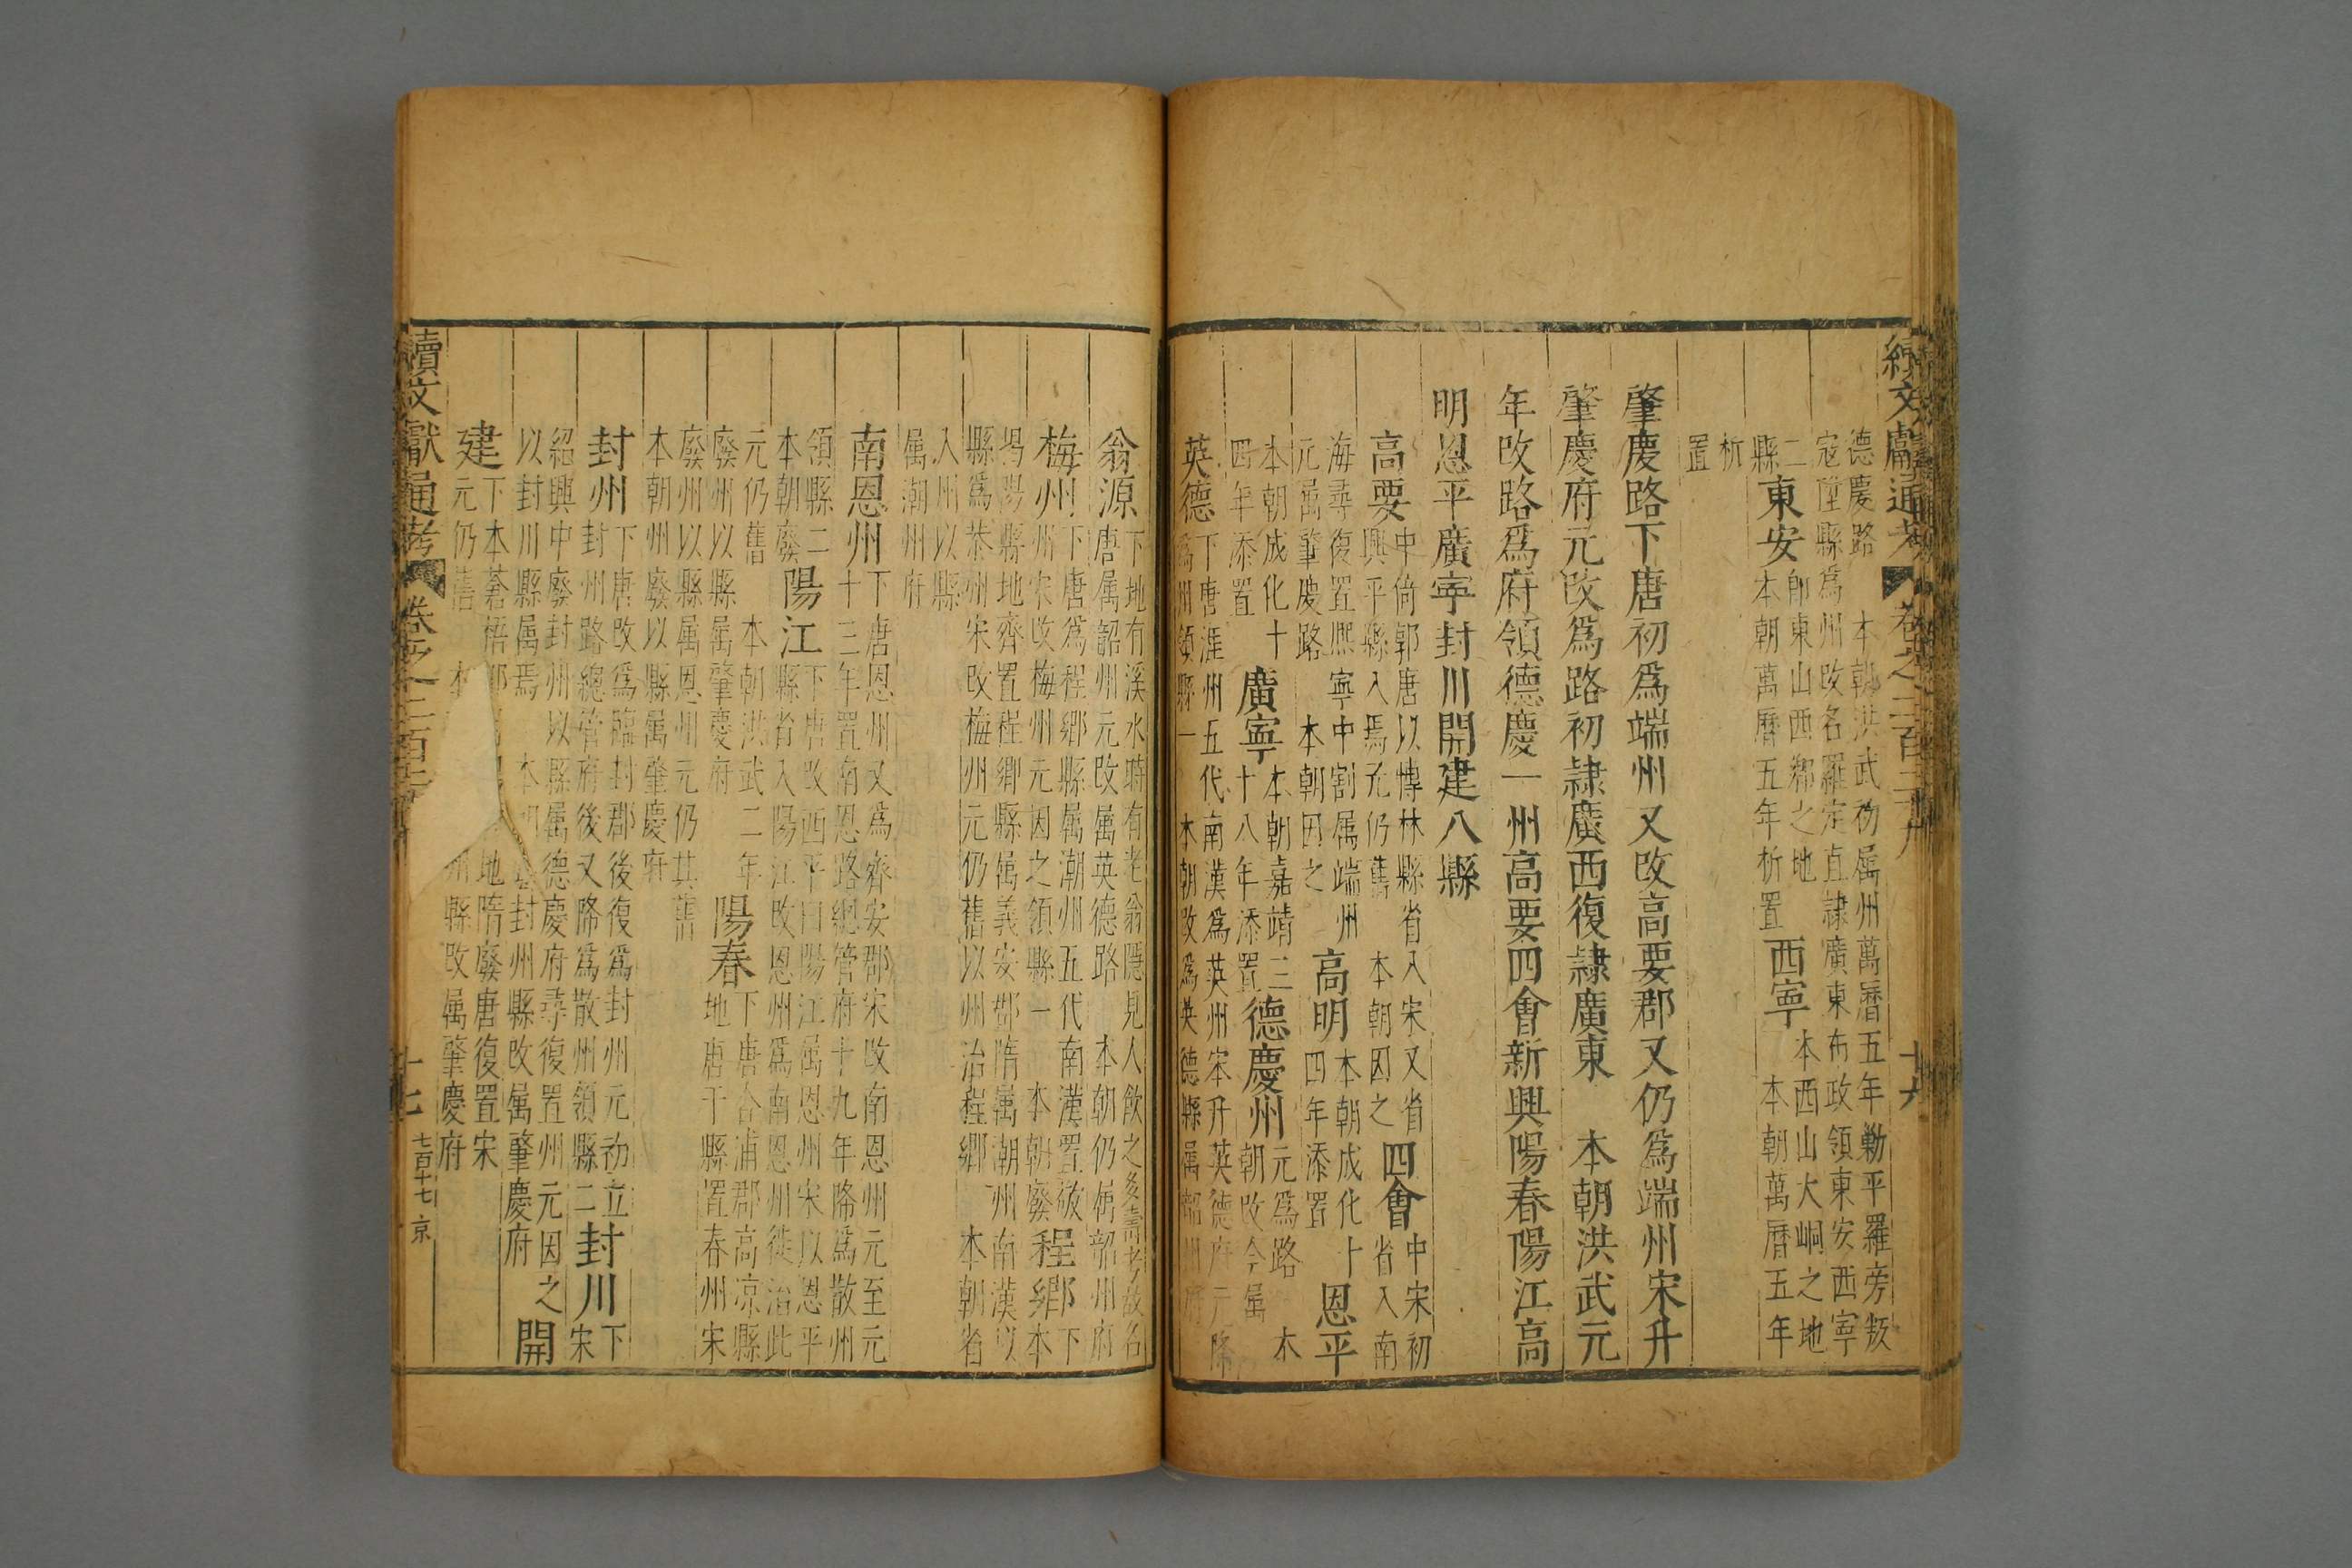 續文獻通考 卷之二百二十八 十六
德慶路 本朝洪武初屬州萬曆五年勦平羅旁叛
寇陞縣爲州改名羅定直隸廣東布政領東安西寧
二縣 東安 卽東山西鄉之地 本朝萬曆五年析置 西寧 本西山大峒之地 本朝萬曆五年
析置
肇慶路下唐初爲端州又改高要郡又仍爲端州宋升
肇慶府元改爲路初隸廣西復隸廣東 本朝洪武元
年改路爲府領德慶一州高要四會新興陽春陽江高
明恩平廣寧封川開建八縣
高要 中倚郭唐以博林縣省入宋又省興平縣入焉元仍舊 本朝因之 四會 中宋初省入南
海尋復置熙寧中割屬端州元屬肇慶路 本朝因之 高明 本朝成化十四年添置 恩平
本朝成化十四年添置 廣寧 本朝嘉靖三十八年添置 德慶州 元爲路 本朝改今屬
英德 下唐涯州五代南漢爲英州宋升英德府元降爲州領縣一 本朝改爲英德縣屬韶州府
翁源 下地有溪水時有老翁隱見人飲之多壽考故名唐屬韶州元改屬英德路 本朝仍屬韶州府
梅州 下唐爲程鄉縣屬潮州五代南漢置敬州宋改梅州元因之領縣一 本朝廢 程鄉 下本
揭陽縣地齊置程鄉縣屬義安郡隋屬潮州南漢以
縣爲恭州宋改梅州元仍舊以州治程鄉 本朝省
入州以縣
屬潮州府
南恩州 下唐恩州又爲齊安郡宋改南恩州元至元十三年置南恩路總管府十九年降爲散州
領縣二 本朝廢 陽江 下唐改西平曰陽江屬恩州宋以恩平縣省入陽江改恩州爲南恩州徙治此
元仍舊 本朝洪武二年廢州以縣屬肇慶府 陽春 下唐合浦郡高凉縣地唐于縣置春州宋
廢州以縣屬恩州元仍其舊
本朝州廢以縣屬肇慶府
封州 下唐改爲臨封郡後復爲封州元初立封州路總管府後又降爲散州領縣二 封川 下宋
紹興中廢封州以縣屬德慶府尋復置州元因之
以封川縣屬焉 本 封州縣改屬肇慶府 開
建 下本蒼梧 地隋廢唐復置宋元仍舊 本 州縣改屬肇慶府
續文獻通考 卷之二百 十七 七百十七 京